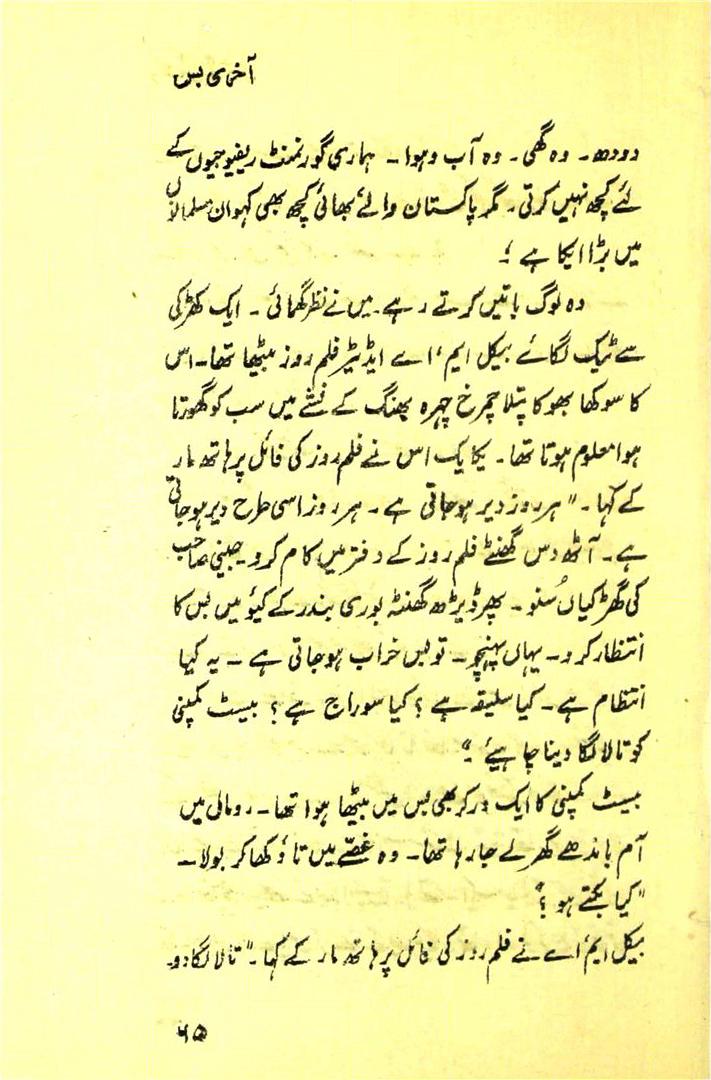 آخری بس
دودھ۔ وہ گھی۔ وہ آب و ہوا۔ ہماری گورنمنٹ ریفیوجیوں کے
لئے کچھ نہیں کرتی۔ مگر پاکستان والے بھائی کچھ بھی کہو ان مسلمانوں
میں بڑا ایکا ہے ؛
وہ لوگ باتیں کرتے رہے۔ میں نے نظر گھمائی۔ ایک کھڑکی
سے ٹیک لگائے بیکل ایم، اے ایڈیٹر فلم روز بیٹھا تھا۔ اس
کا سوکھا بھوکا پتلا چمرخ چہرہ بھنگ کے نشے میں سب کو گھورتا
ہوا معلوم ہوتا تھا۔ یکایک اس نے فلم روز کی فائل پر ہاتھ مار
کے کہا۔ "ہر روز دیر ہو جاتی ہے۔ ہر روز اسی طرح دیر ہو جاتی
ہے۔ آٹھ دس گھنٹے فلم روز کے دفتر میں کام کرو۔ صاحب
کی گھڑکیاں سُنو۔ پھر ڈیڑھ گھنٹہ بوری بندر کے کیو میں بس کا
انتظار کرو۔ یہاں پہنچو۔ تو بس خراب ہو جاتی ہے۔ یہ کیا
انتظام ہے۔ کیا سلیقہ ہے ؟ کیا سوراج ہے ؟ بیسٹ کمپنی
کو تالا لگا دینا چاہیئے۔"
بیسٹ کمپنی کا ایک ورکر بھی بس میں بیٹھا ہوا تھا۔ رومالی میں
آم باندھے گھر لے جا رہا تھا۔ وہ غصّے میں تاؤ کھا کر بولا۔
"کیا بکتے ہو ؟"
بیکل ایم اے نے فلم روز کی فائل پر ہاتھ مار کے کہا۔ "تالا لگا دو۔
۶۵